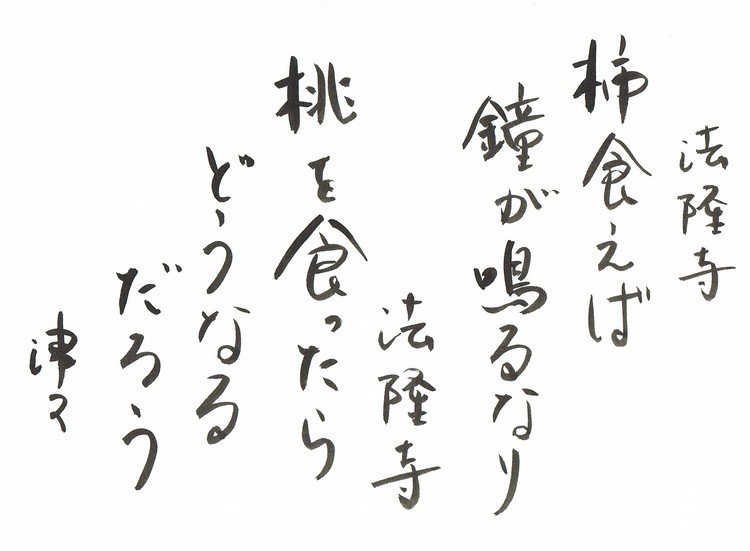 法隆寺
柿食えば
鐘が鳴るなり
法隆寺
桃を食ったら
どうなる
だろう
津々